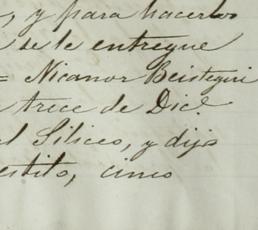 , y para hacerlos
se le entregue
= Nicanor Beistegui
trece de Dic.e
el Siliceo, y dijo
estito, cinco